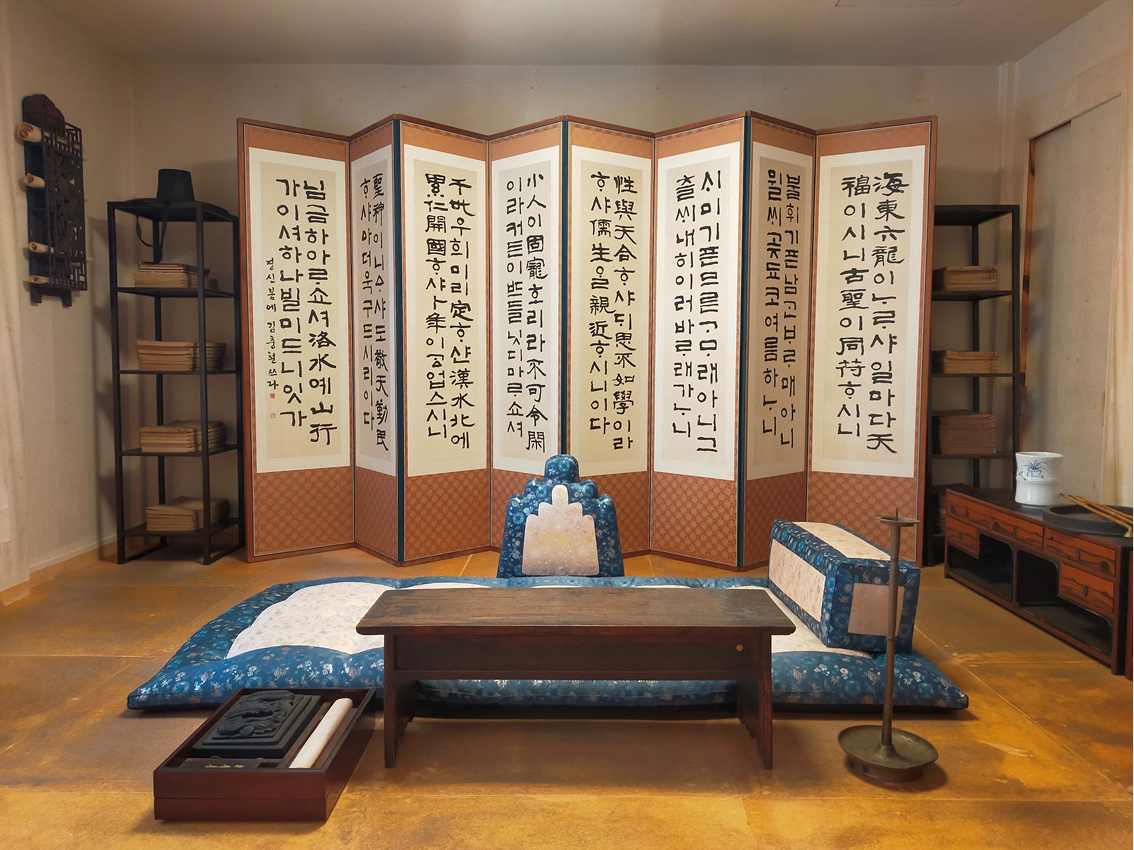 海東六龍이ᄂᆞᄅᆞ샤일마다天
福이시니古聖이同符ᄒᆞ시니
불휘기픈남ᄀᆞᆫᄇᆞᄅᆞ매아니
뮐ᄊᆡ곶됴코여름하ᄂᆞ니
ᄉᆡ미기픈므른ᄀᆞᄆᆞ래아니그
츨ᄊᆡ내히이러바ᄅᆞ래가ᄂᆞ니
性與天合ᄒᆞ샤ᄃᆡ思不如學이라
ᄒᆞ샤儒生ᄋᆞᆯ親近ᄒᆞ시니이다
小人이固寵호리라不可令閑
이라커든이ᄠᅳ들닛디마ᄅᆞ쇼셔
千世우희미리定ᄒᆞ샨漢水北에
累仁開國ᄒᆞ샤卜年이ᄀᆞᇫ업스시니
聖神이니ᅀᆞ샤도敬天勤民
ᄒᆞ샤ᅀᅡ더욱구드시리이다
님금하아ᄅᆞ쇼셔洛水예山行
가이셔하나빌미드니잇가
경신봄에 김충현쓰다